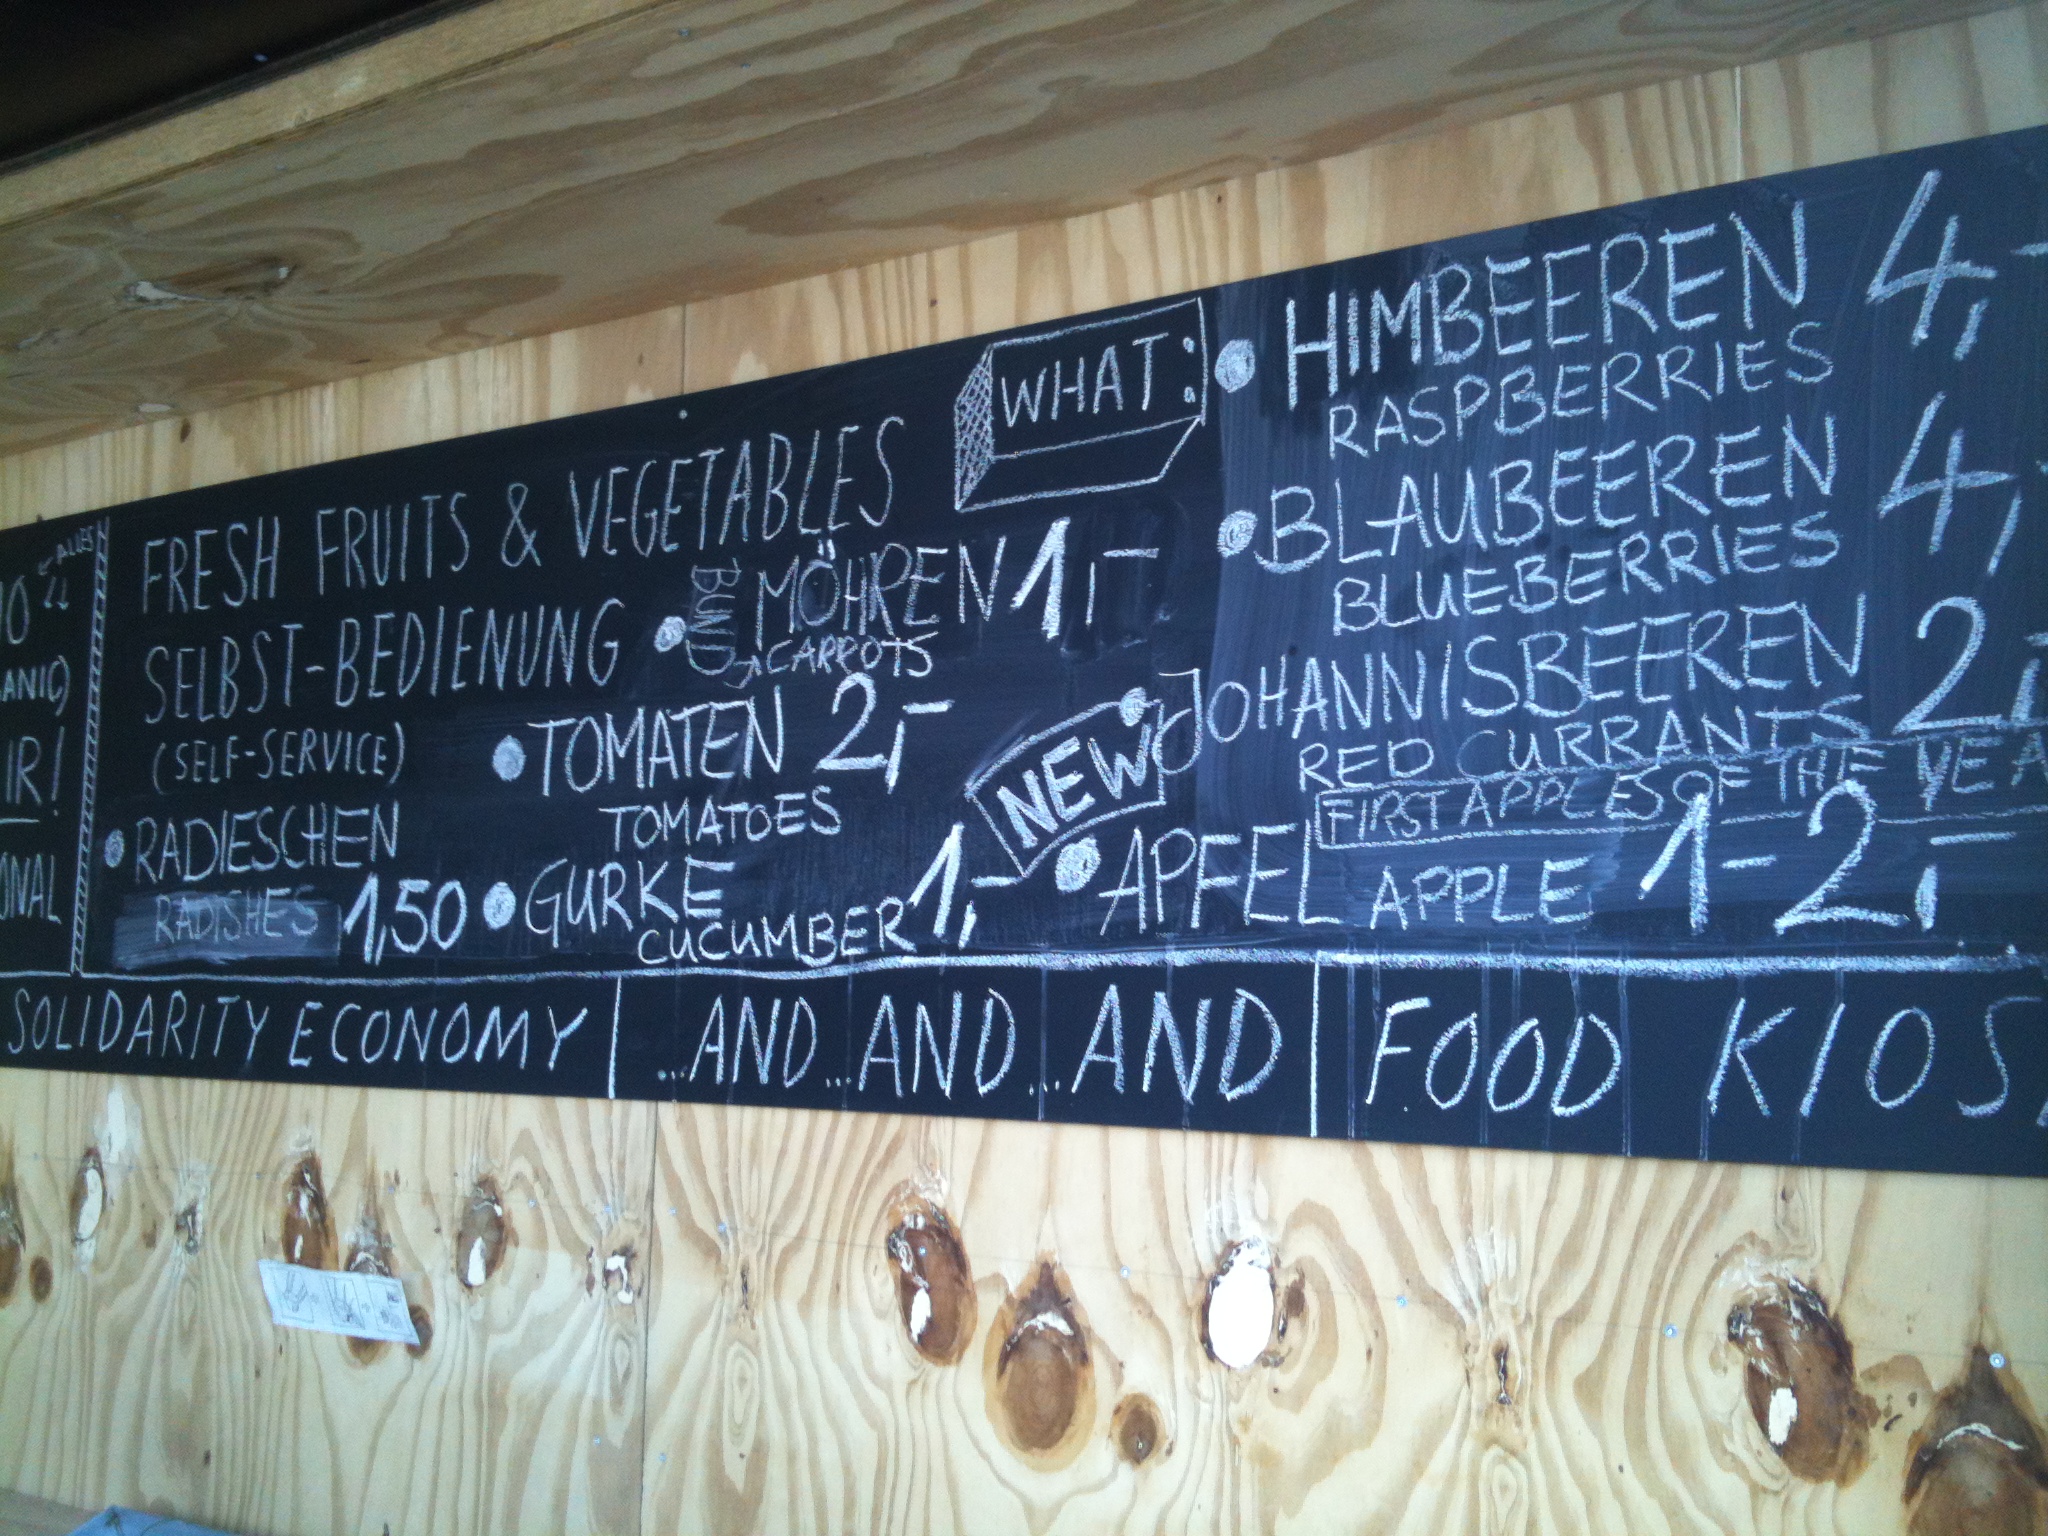 ALLES
ANIC)
IR!
ONAL
FRESH FRUITS & VEGETABLES
SELBST-BEDIENUNG
(SELF-SERVICE)
RADIESCHEN
RADISHES 1,50
BUND MÖHREN 1,-
CARROTS
TOMATEN 2,-
TOMATOES
GURKE
CUCUMBER 1,-
WHAT:
HIMBEEREN 4,-
RASPBERRIES
BLAUBEEREN 4,-
BLUEBERRIES
JOHANNISBEEREN 2,-
RED CURRANTS
NEW
FIRST APPLES OF THE YEA
APFEL APPLE 1-2,-
SOLIDARITY ECONOMY
...AND...AND...AND
FOOD KIOS